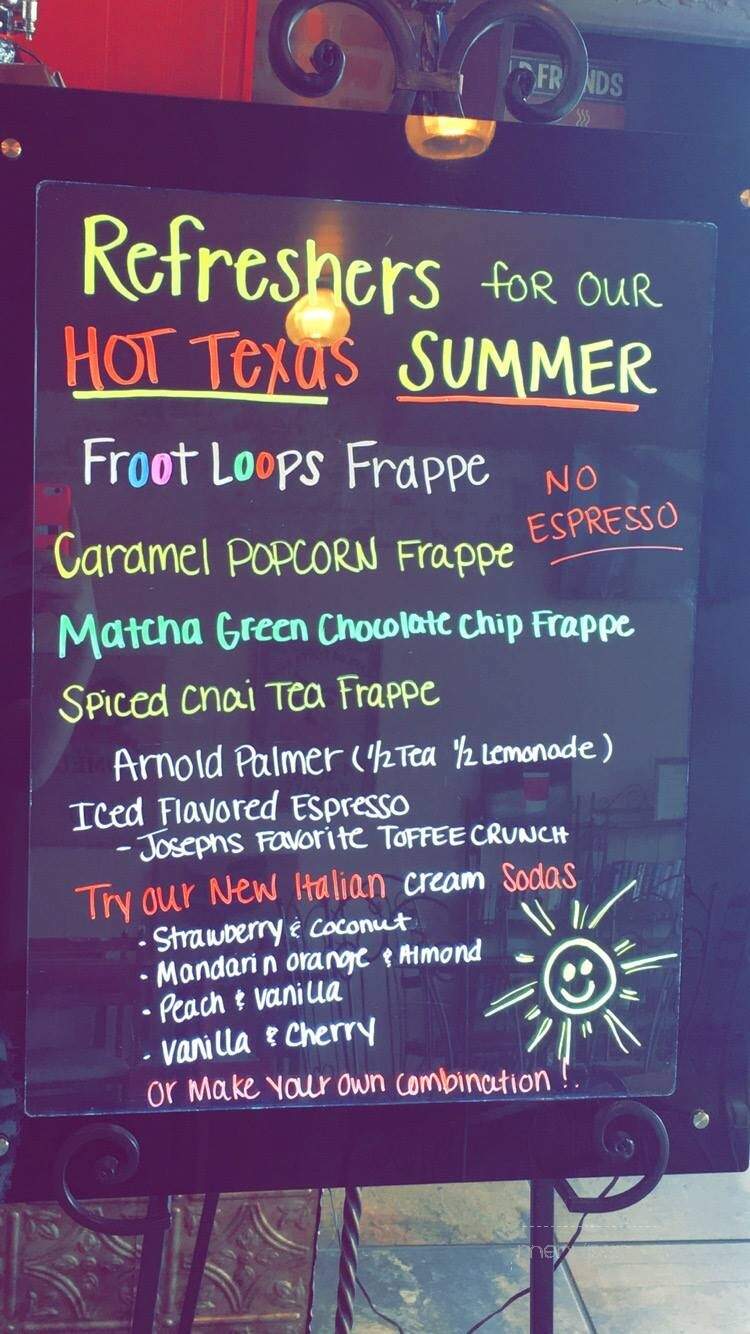 Refreshers for our
Hot Texas Summer
Froot Loops Frappe
NO
ESPRESSO
Caramel POPCORN Frappe
Matcha Green Chocolate Chip Frappe
Spiced Chai Tea Frappe
Arnold Palmer (1/2 Tea 1/2 Lemonade)
Iced Flavored Espresso
- Josephs Favorite TOFFEE CRUNCH
Try our New Italian cream Sodas
• Strawberry & Coconut
• Mandarin orange & Almond
• Peach & vanilla
• Vanilla & Cherry
Or Make Your Own Combination!